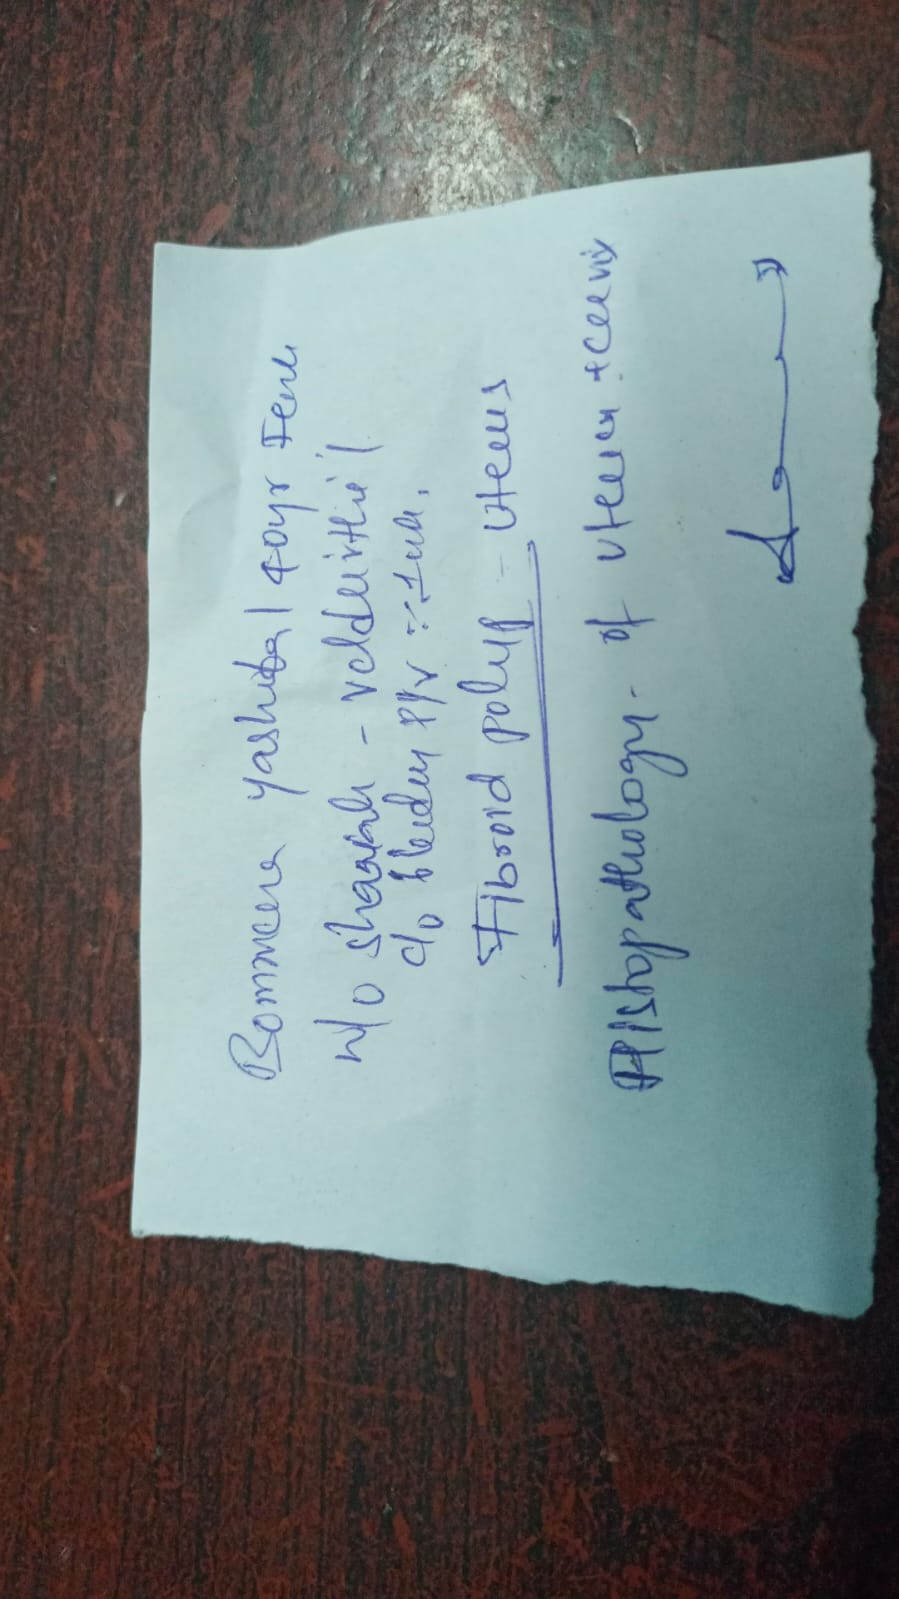 Bommera yashoda / 40yr Fem
W/O Sharath - velduirthi /
c/o bleeding P/V ∵ 1 wk.
Fibroid polyp - uterus
Histopathology - of uterus + cervix